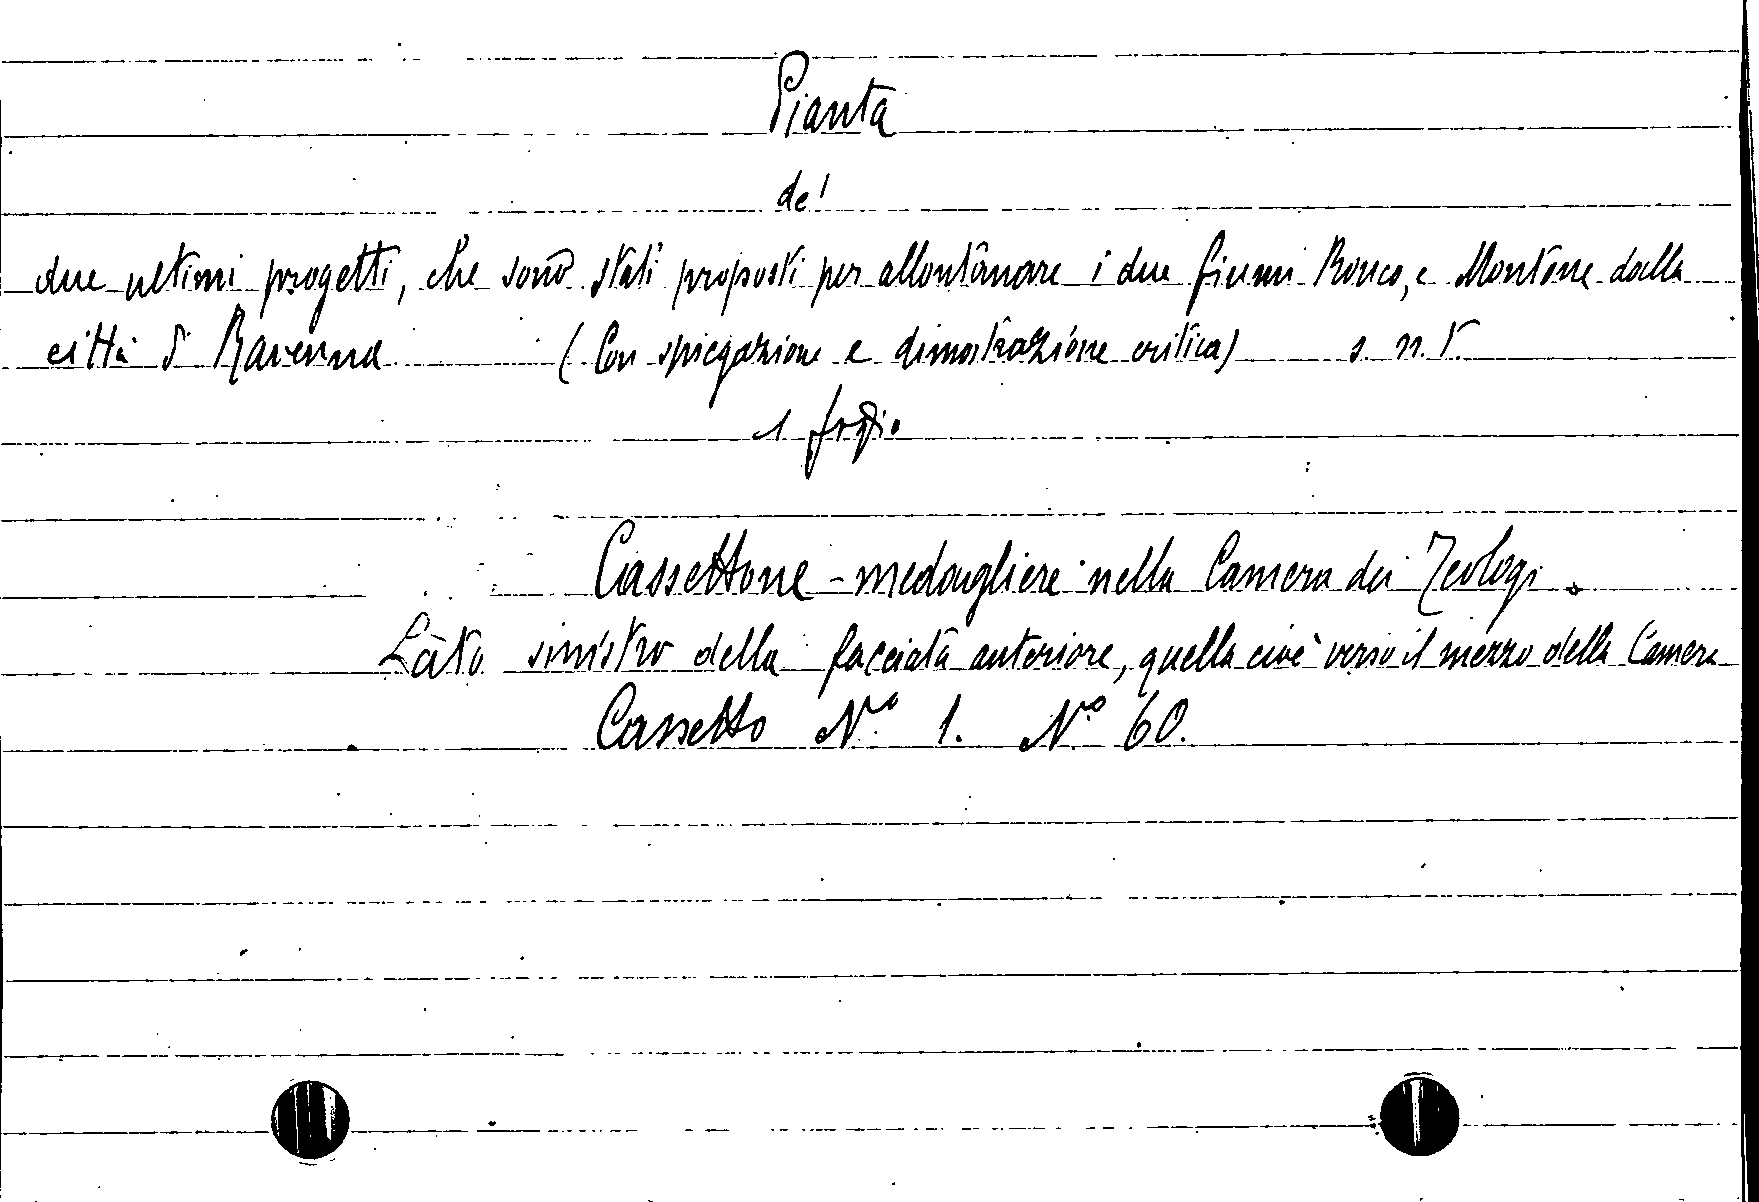 Pianta
de'
due ultimi progetti, che sono stati proposti per allontanare i due fiumi Ronco, e Montone dalla
città di Ravenna (Con spiegazione e dimostrazione critica) s. n. t.
1 foglio
Cassettone - medagliere nella Camera dei Teologi.
Lato sinistro della facciata anteriore, quella cioè verso il mezzo della Camera
Cassetto N.º 1. N.º 60.